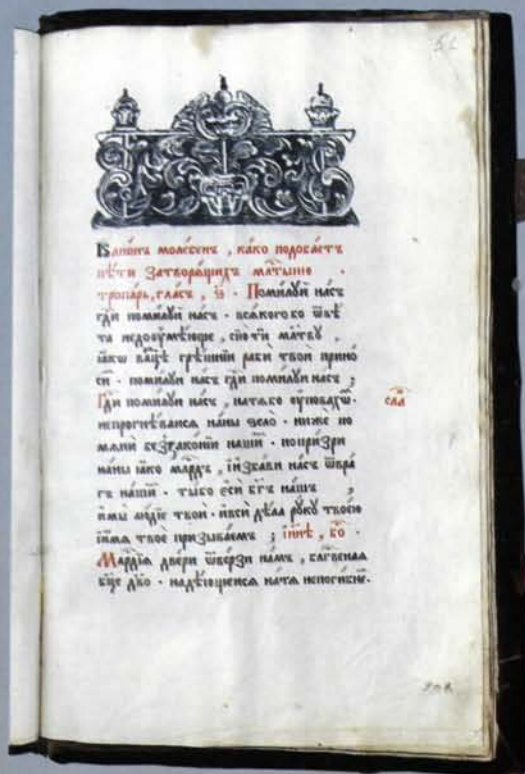 Канѡнъ молебенъ , како подобаетъ
пѣти затворѧщихъ мл҃тьıню .
тропарь, гласъ , ѕ҃ · Помилꙋй на́съ
гд҃и помилꙋй насъ · всѧ́когобо ѿвѣ́
та недоꙋмѣ́юще , сїю ти мл҃твꙋ ,
ꙗ́кѡ влⷣцѣ грѣ́шнїи раби твои прино́
си · помилꙋй насъ гд҃и помилꙋй насъ ;
Гд҃и помилꙋй насъ , натѧ́бо оуповахѡⷨ ·
слⷡа
непрогнѣ́вайсѧ наны ѕело · ниже по
мѧнѝ беззако́нїи нашиⷯ · нопри́зри
наны ꙗко млⷭ҇рдъ , и҆и҆збави насъ ѿвра́
гъ нашиⷯ · тыбо е҆сѝ бг҃ъ нашъ ,
и҆мы лю́дїе твоѝ · и҆всѝ дѣ́ла рꙋкꙋ твое́ю
и҆и҆мѧ твоѐ призыва́емъ ; и҆нн҃ѣ , бо ·
Млⷭ҇рдїѧ двери ѿверзи намъ , блгⷭ҇венаѧ
бц҃е дв҃о · надѣ́ющїесѧ натѧ̀ непоги́бнеⷨ ·